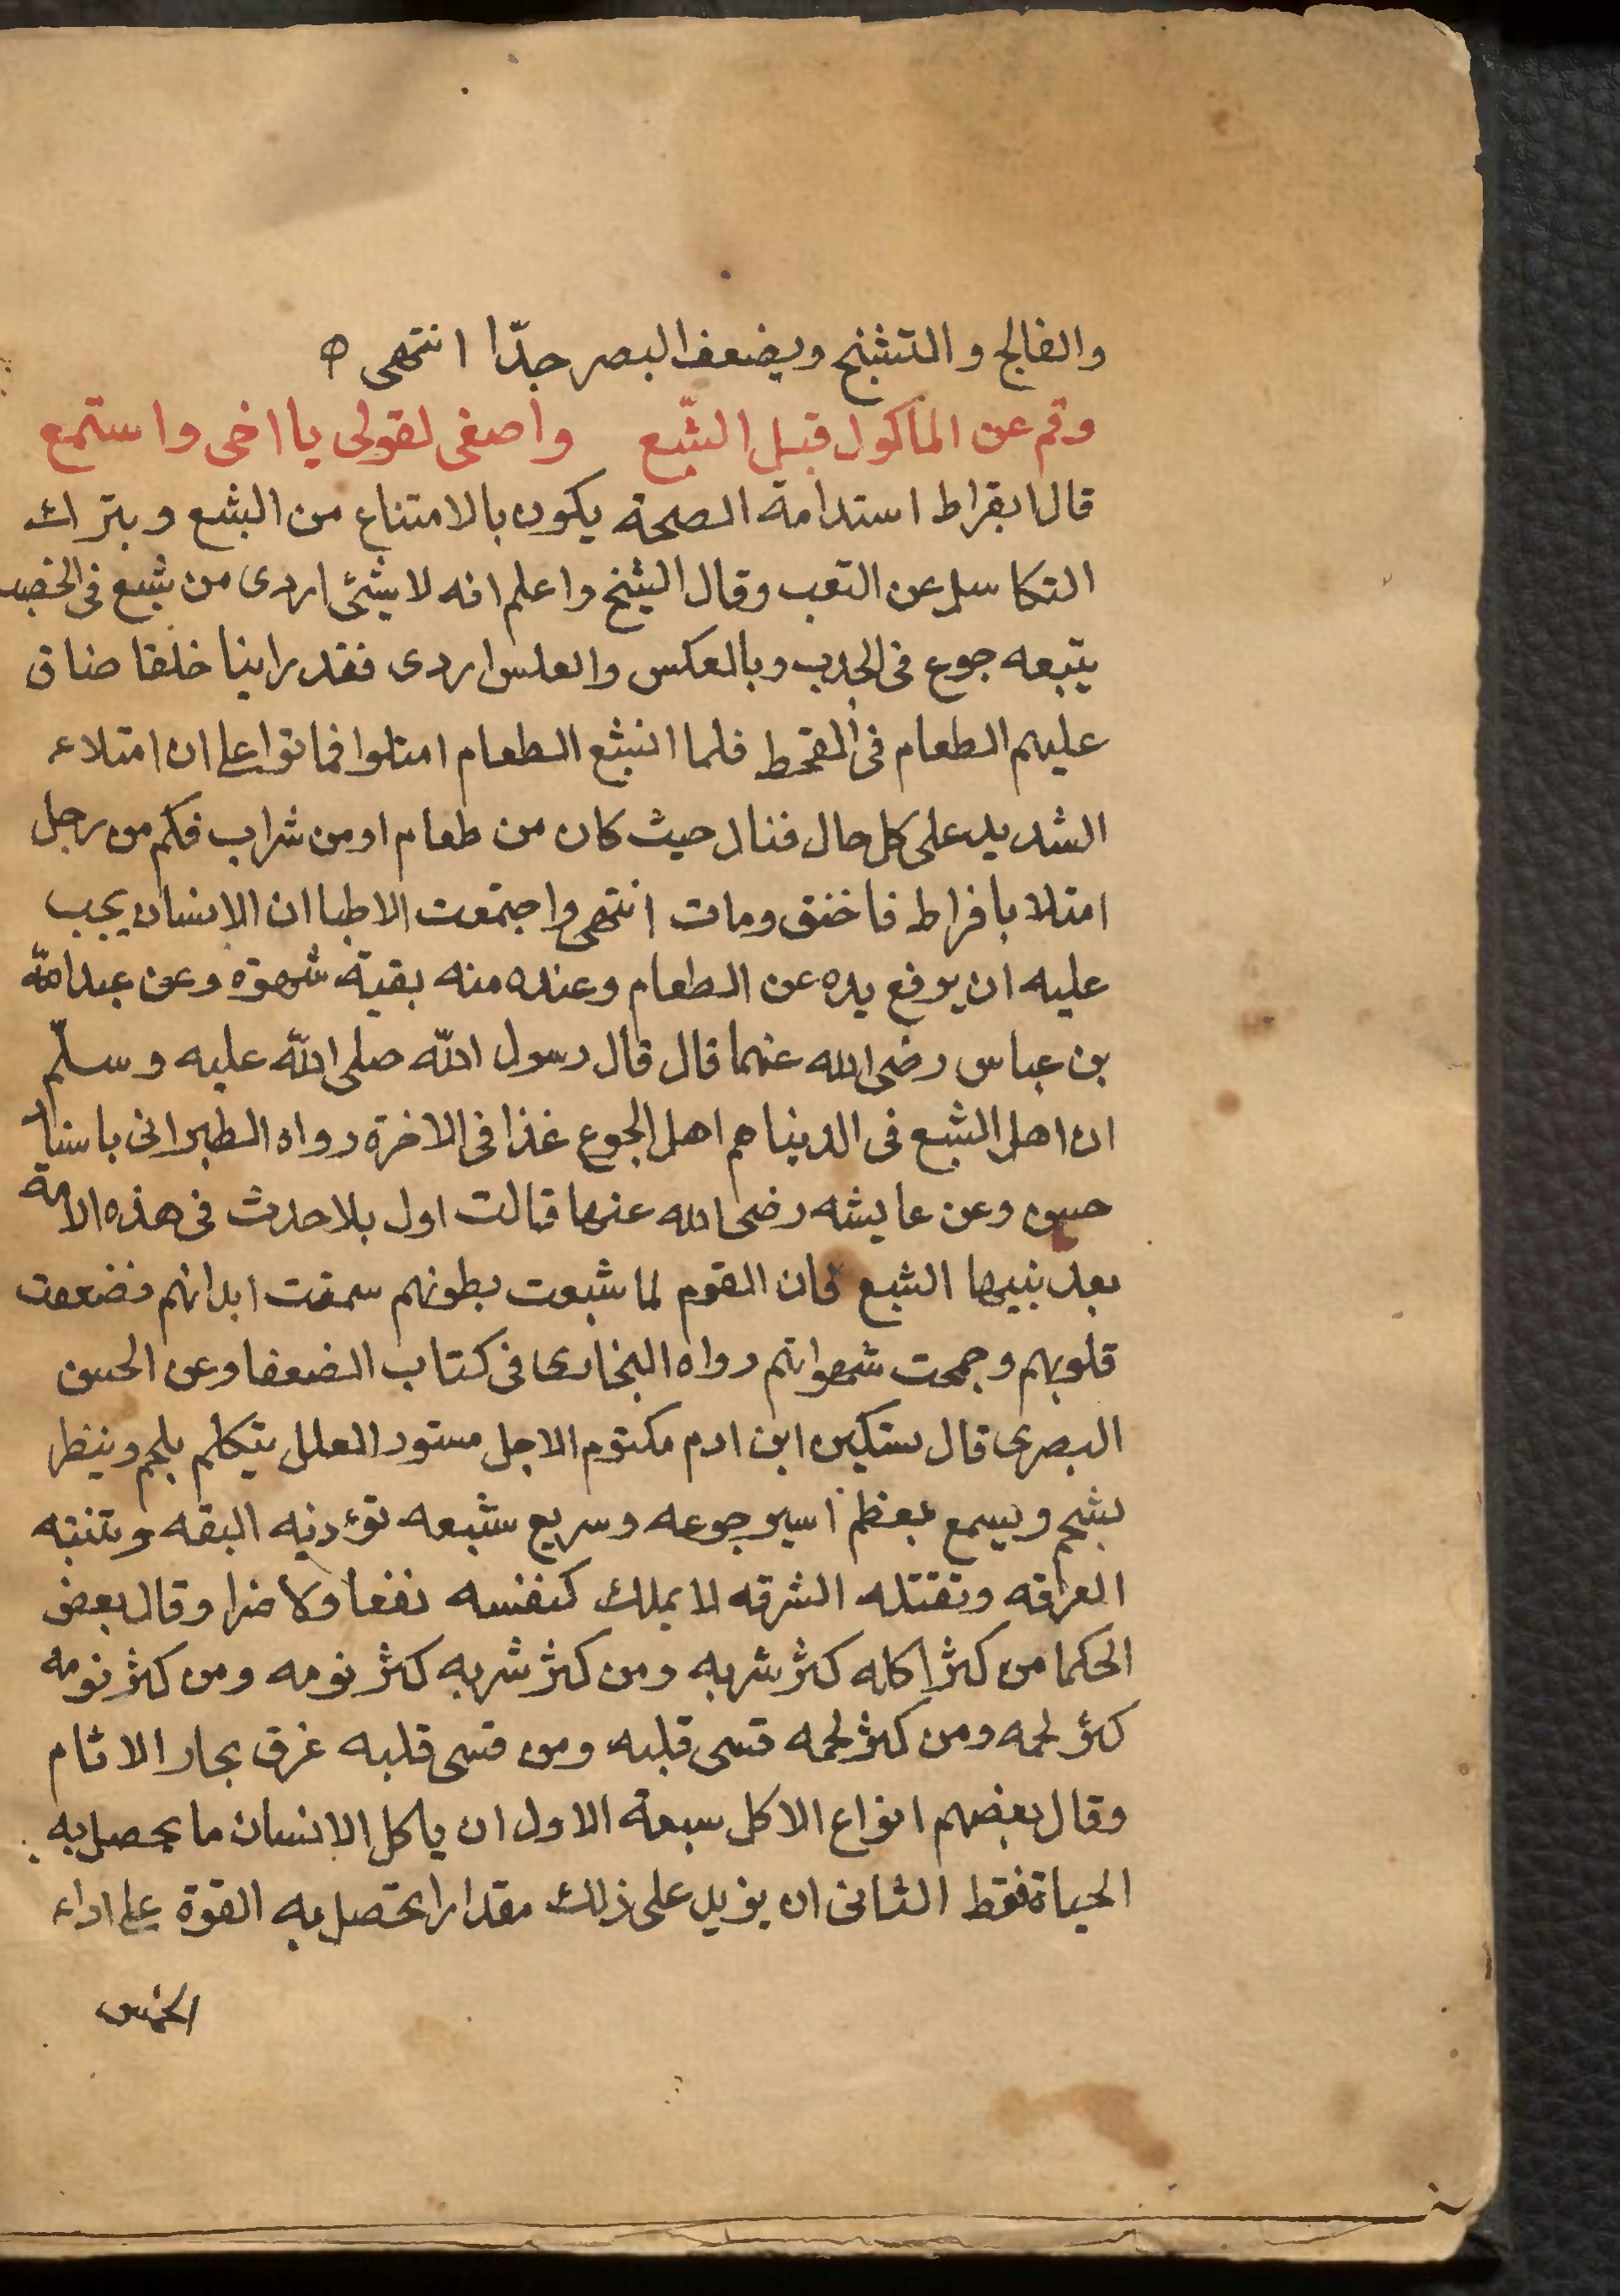 والفالج والتشنج ويضعف البصر جدّا انتهى ه
وقم عن الماكول قبل الشّبع واصغى لقولى يا اخى واستمع
قال ابقراط استدامة الصحة يكون بالامتناع من الشبع وبترك
التكاسل عن التعب وقال الشيخ واعلم انه لا شئ اردى من شبع فى الخصب
يتبعه جوع فى الجدب وبالعكس والعكس اردى فقد راينا خلقا ضاق
عليهم الطعام فى القحط فلما اتسع الطعام امتلوا فماتوا على ان امتلاء
الشديد على كل حال قتال حيث كان من طعام او من شراب فكم من رجل
امتلا بافراط فاختنق ومات انتهى واجتمعت الاطبا ان الانسان يجب
عليه ان يرفع يده عن الطعام وعنده منه بقية شهوة وعن عبد الله
بن عباس رضى الله عنهما قال قال رسول الله صلى الله عليه وسلّم
ان اهل الشبع فى الدنيا هم اهل الجوع غذا فى الاخرة رواه الطبرانى باسناد
حسن وعن عايشه رضى الله عنها قالت اول بلا حدث فى هذه الامة
بعد نبيها الشبع فان القوم لما شبعت بطونهم سمنت ابدانهم فضعفت
قلوبهم وجمحت شهواتهم رواه البخارى فى كتاب الضعفا وعن الحسن
البصرى قال مسكين ابن ادم مكتوم الاجل مستور العلل يتكلم بلحم وينظر
بشحم ويسمع بعظم اسير جوعه وسريع شبعه توءذيه البقه وتنتنه
العرقه وتقتله الشرقه لا يملك لنفسه نفعا ولا ضرا وقال بعض
الحكما من كثر اكله كثر شربه ومن كثر شربه كثر نومه ومن كثر نومه
كثر لحمه ومن كثر لحمه قسى قلبه ومن قسى قلبه غرق بحار الاثام
وقال بعضهم انواع الاكل سبعة الاول ان ياكل الانسان ما يحصل به
الحياة فقط الثانى ان يزيد على ذلك مقدارا تحصل به القوة على اداء
الخمس